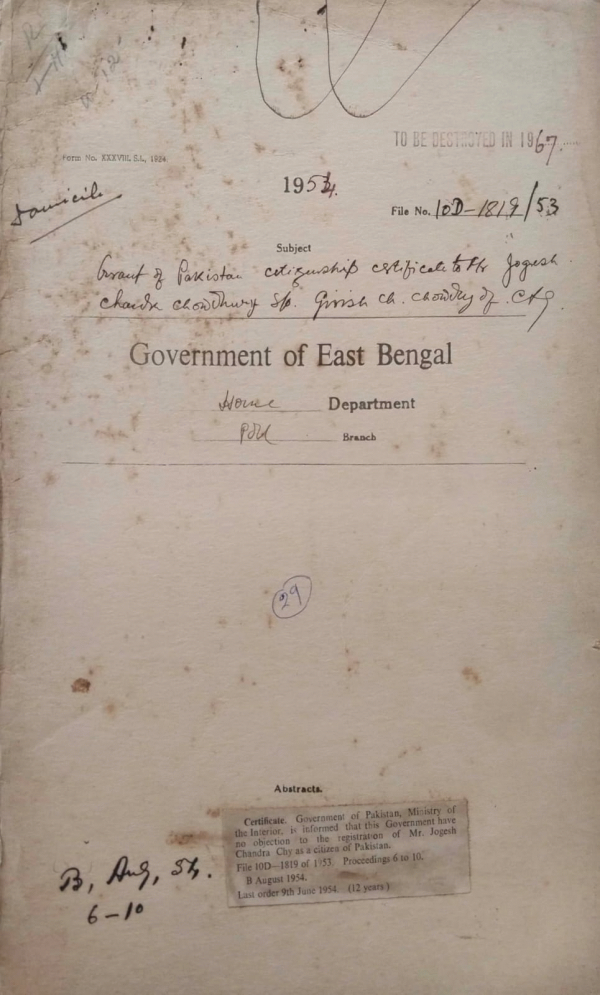 TO BE DESTROYED IN 1967.
Form No. XXXVIII, S.L., 1924
Domicile
1954.
File No. 10D-1819/53
Subject
Grant of Pakistan citizenship certificate to Mr Jogesh
Chandra Chowdhury S/o. Girish Ch. Chowdhry of Ctg.
Government of East Bengal
Home Department
Poll Branch
29
Abstracts.
Certificate. Government of Pakistan, Ministry of
the Interior, is informed that this Government have
no objection to the registration of Mr. Jogesh
Chandra Chy as a citizen of Pakistan.
File 10D—1819 of 1953. Proceedings 6 to 10.
B August 1954.
Last order 9th June 1954 (12 years)
B, Aug, 54.
6-10